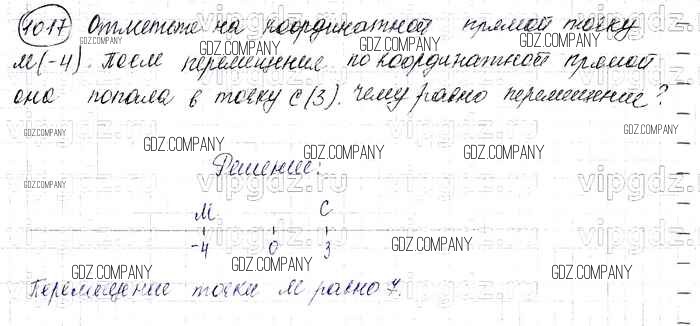 1017 Отметьте на координатной прямой точку
М(-4). После перемещение по координатной прямой
она попала в точку С(3). Чему равно перемещение?
GDZ.COMPANY GDZ.COMPANY GDZ.COMPANY GDZ.COMPANY
GDZ.COMPANY GDZ.COMPANY GDZ.COMPANY
vipgdz.ru vipgdz.ru vipgdz.ru
GDZ.COMPANY GDZ.COMPANY GDZ.COMPANY
Решение:
vipgdz.ru vipgdz.ru vipgdz.ru
GDZ.COMPANY GDZ.COMPANY
М С
-4 0 3
GDZ.COMPANY GDZ.COMPANY
vipgdz.ru vipgdz.ru vipgdz.ru
Перемещение точки М равно 7.